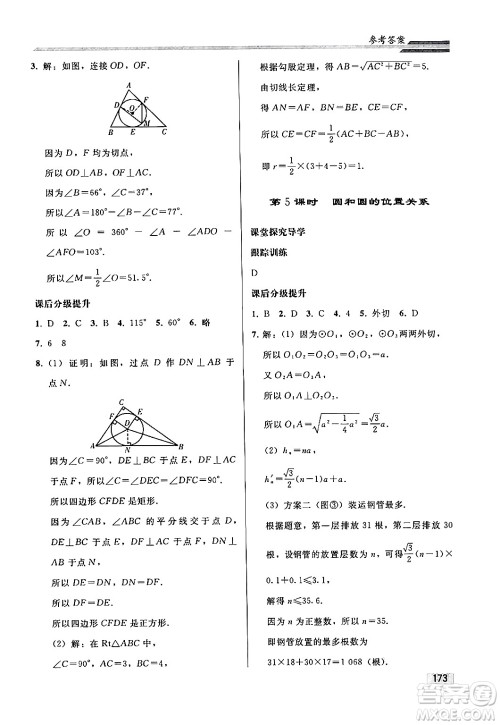 参考答案
3. 解：如图，连接 OD，OF.
A
D
F
O
M
B
E
C
因为 D，F 均为切点，
所以 OD⊥AB，OF⊥AC.
因为∠B=66°，∠C=37°，
所以∠A=180°-∠B-∠C=77°.
所以∠O=360°-∠A-∠ADO-
∠AFO=103°.
所以∠M=1/2∠O=51.5°.
课后分级提升
1. D 2. D 3. B 4. 115° 5. 60° 6. 略
7. 6 8
8.（1）证明：如图，过点 D 作 DN⊥AB 于
点 N.
C
F
E
D
A
N
B
因为∠C=90°，DE⊥BC 于点 E，DF⊥
AC 于点 F，
所以四边形 CFDE 是矩形.
因为∠CAB，∠CBA 的平分线交于点 D，
所以 DE=DN，DF=DN.
所以 DE=DF.
所以四边形 CFDE 是正方形.
（2）解：在 Rt△ABC 中，
因为∠C=90°，AC=3，BC=4，
根据勾股定理，得 AB=√(AC²+BC²)=5.
由切线长定理，
得 CE=CF=1/2(AC+BC-AB).
所以 CE=CF=1/2×(3+4-5)=1.
即 r=1/2×(3+4-5)=1.
第 5 课时 圆和圆的位置关系
课堂探究导学
跟踪训练
D
课后分级提升
1. B 2. D 3. C 4. 4 5. 外切 6. D
7. 解：（1）因为⊙O₁，⊙O₂，⊙O₃ 两两外切，
所以 O₁O₂=O₂O₃=O₁O₃=a.
又因为 O₂A=O₃A，
所以 O₁A⊥O₂O₃.
所以 O₁A=√(a²-1/4a²)=√3/2a.
（2）hₙ=na，
h′ₙ=√3/2(n-1)a+a.
（3）方案二（图③）装运钢管最多.
根据题意，第一层排放 31 根，第二层排放
30 根，设钢管的放置层数为 n，可得√3/2(n-1)×
0.1+0.1≤3.1.
解得 n≤35.6.
因为 n 为正整数，所以 n=35.
即钢管放置的最多根数为
31×18+30×17=1 068（根）.
173